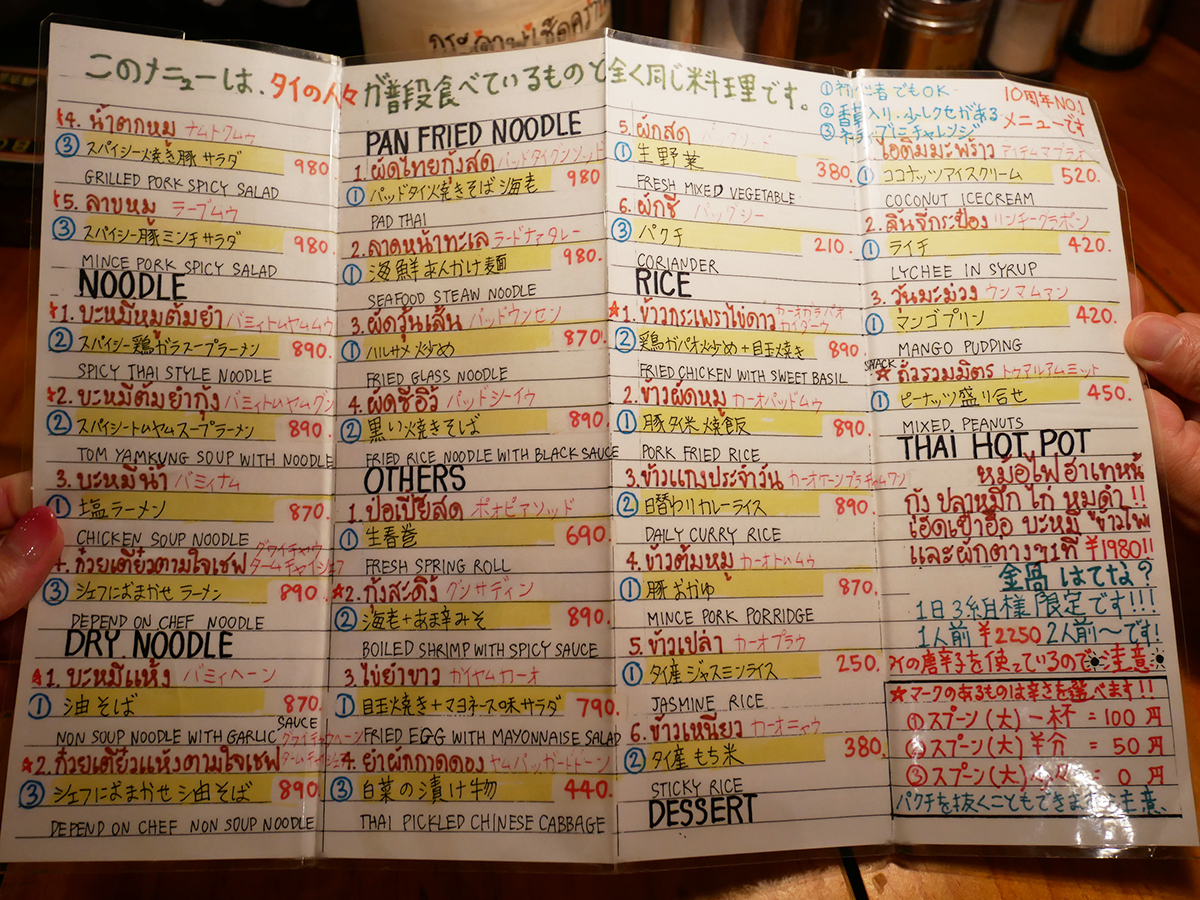 กระดาษเช็ด
このメニューは、タイの人々が普段食べているものと全く同じ料理です。
①初心者でもOK
②香草入り・少しクセがある
③ネイティブにチャレンジ
10周年NO.1
メニューです
4. น้ำตกหมู ナムトクムウ
③ スパイシー焼き豚サラダ 980
GRILLED PORK SPICY SALAD
5. ลาบหมู ラープムウ
③ スパイシー豚ミンチサラダ 980.
MINCE PORK SPICY SALAD
NOODLE
★1. บะหมี่หมูต้มยำ バミィトムヤムムウ
② スパイシー鶏ガラスープラーメン 890.
SPICY THAI STYLE NOODLE
★2. บะหมี่ต้มยำกุ้ง バミィトムヤムクン
② スパイシートムヤムスープラーメン 890.
TOM YAMKUNG SOUP WITH NOODLE
3. บะหมี่น้ำ バミィナム
① 塩ラーメン 870.
CHICKEN SOUP NOODLE
4. ก๋วยเตี๋ยวตามใจเชฟ
③ シェフにおまかせ ラーメン 890.
DEPEND ON CHEF NOODLE
DRY NOODLE
★1. บะหมี่แห้ง バミィヘーン
① 油そば 870.
NON SOUP NOODLE WITH GARLIC SAUCE
★2. ก๋วยเตี๋ยวแห้งตามใจเชฟ
③ シェフにおまかせ油そば 890.
DEPEND ON CHEF NON SOUP NOODLE
PAN FRIED NOODLE
1. ผัดไทยกุ้งสด パッドタイクンソッド
① パッドタイ焼きそば 海老 980
PAD THAI
2. ลาดหน้าทะเล ラードナァタレー
① 海鮮あんかけ麺 980.
SEAFOOD STEAW NOODLE
3. ผัดวุ้นเส้น パッドウンセン
① ハルサメ炒め 870.
FRIED GLASS NOODLE
4. ผัดซีอิ๊ว パッドシーイウ
② 黒い焼きそば 890.
FRIED RICE NOODLE WITH BLACK SAUCE
OTHERS
1. ปอเปี๊ยสด ポオピアソッド
① 生春巻 690.
FRESH SPRING ROLL
★2. กุ้งสะดิ้ง グンサディン
② 海老+あま辛みそ 890.
BOILED SHRIMP WITH SPICY SAUCE
3. ไข่ยำขาว カイヤムカーオ
① 目玉焼き+マヨネース味サラダ 790.
FRIED EGG WITH MAYONNAISE SALAD
4. ยำผักกาดดอง ヤムパッガードドーン
③ 白菜の漬け物 440.
THAI PICKLED CHINESE CABBAGE
5. ผักสด
① 生野菜 380.
FRESH MIXED VEGETABLE
6. ผักชี パックシー
③ パクチ 210.
CORIANDER
RICE
★1. ข้าวกระเพราไข่ดาว カーオカラパオ カイダーウ
② 鶏ガパオ炒め+目玉焼き 890.
FRIED CHICKEN WITH SWEET BASIL
2. ข้าวผัดหมู カーオパッドムウ
① 豚タイ米焼飯 890.
PORK FRIED RICE
3. ข้าวแกงประจำวัน カーオケーンプラチャムワン
② 日替わりカレーライス 890.
DAILY CURRY RICE
4. ข้าวต้มหมู カーオトムムウ
① 豚おかゆ 870.
MINCE PORK PORRIDGE
5. ข้าวเปล่า カーオプラウ
① タイ産ジャスミンライス 250.
JASMINE RICE
6. ข้าวเหนียว カーオニャウ
② タイ産もち米 380.
STICKY RICE
DESSERT
ไอติมมะพร้าว アイティムマプラオ
① ココナッツアイスクリーム 520.
COCONUT ICECREAM
2. ลิ้นจี่กระป๋อง リンチークラポン
① ライチ 420.
LYCHEE IN SYRUP
3. วุ้นมะม่วง ウンマムアン
① マンゴプリン 420.
MANGO PUDDING
SNACK
★ ถั่วรวมมิตร トゥアルアムミット
① ピーナッツ盛り合せ 450.
MIXED PEANUTS
THAI HOT POT
หม้อไฟฮาเทหน้
กุ้ง ปลาหมึก ไก่ หมูดำ !!
เฮ็ดเข้าฮื้อ บะหมี่ ข้าวโพ
และผักต่างๆ 1ที่ ¥1980!!
金鍋 はてな?
1日3組様限定です!!!
1人前 ¥2250 2人前~です!
イの唐辛子を使っているのでご注意
★マークのあるものは辛さを選べます!!
①スプーン(大)一杯 = 100円
②スプーン(大)半分 = 50円
③スプーン(大) = 0円
パクチを抜くこともできます 注意